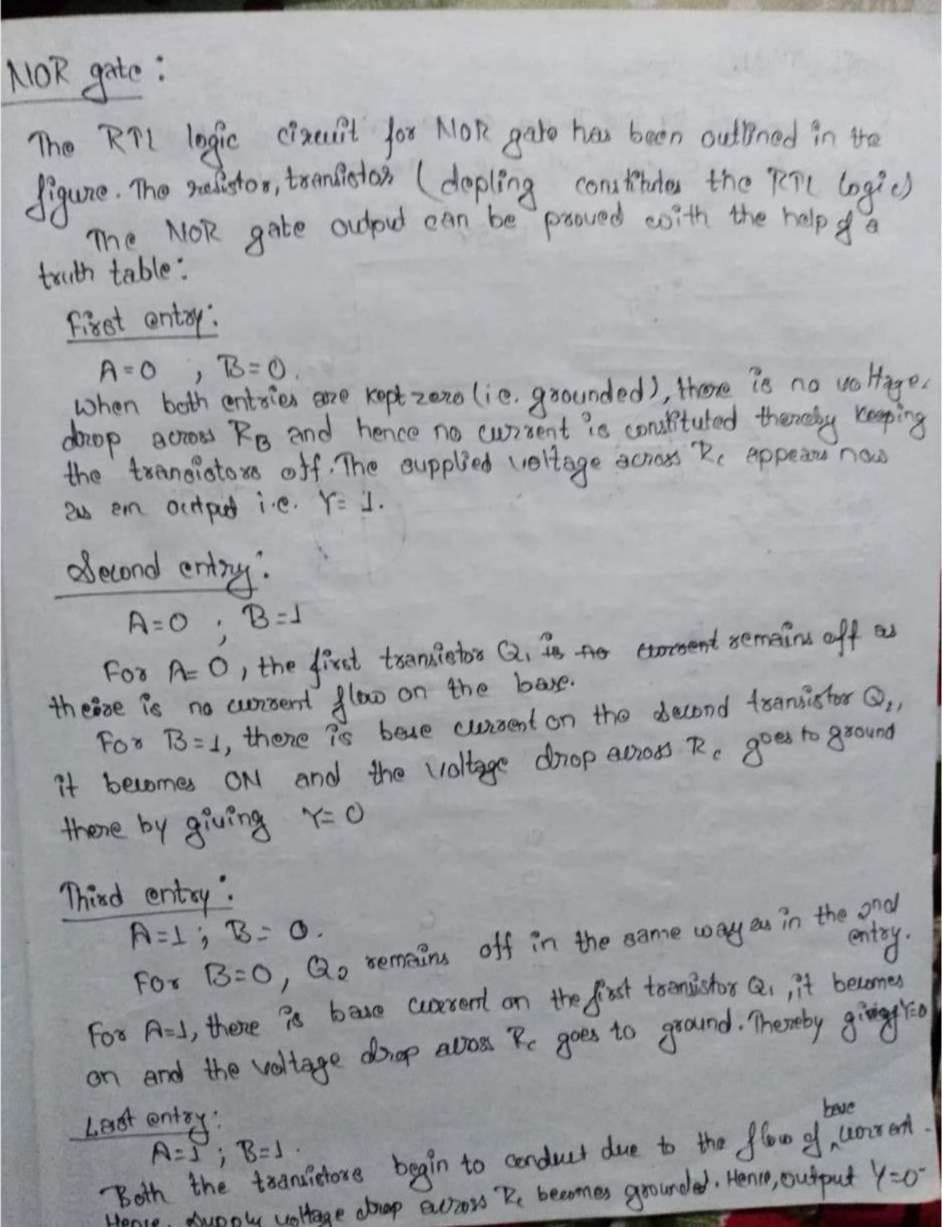 NOR gate :
The RTL logic circuit for NOR gate has been outlined in the
figure. The resistor, transistor (dopling constitutes the RTL logic)
The NOR gate output can be proved with the help of a
truth table:
First entry:
A=0 , B=0.
When both entries are kept zero (i.e. grounded), there is no voltage
drop across RB and hence no current is constituted thereby keeping
the transistors off. The supplied voltage across Rc appears now
as an output i.e. Y= 1.
Second entry:
A=0 ; B=1
For A=0, the first transistor Q1 is no current remains off as
there is no current flow on the base.
For B=1, there is base current on the second transistor Q2,
it becomes ON and the voltage drop across Rc goes to ground
there by giving Y=0
Third entry:
A=1 ; B=0.
For B=0, Q2 remains off in the same way as in the 2nd
entry.
For A=1, there is base current on the first transistor Q1, it becomes
on and the voltage drop across Rc goes to ground. Thereby giving Y=0
Last entry:
A=1 ; B=1.
Both the transistors begin to conduct due to the flow of base current.
Hence, supply voltage drop across Rc becomes grounded. Hence, output Y=0